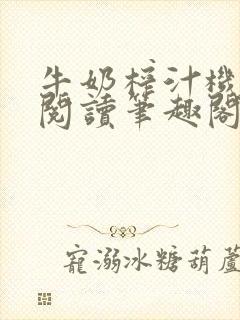 牛奶榨汁機
閱讀筆趣閣
寵溺冰糖葫蘆